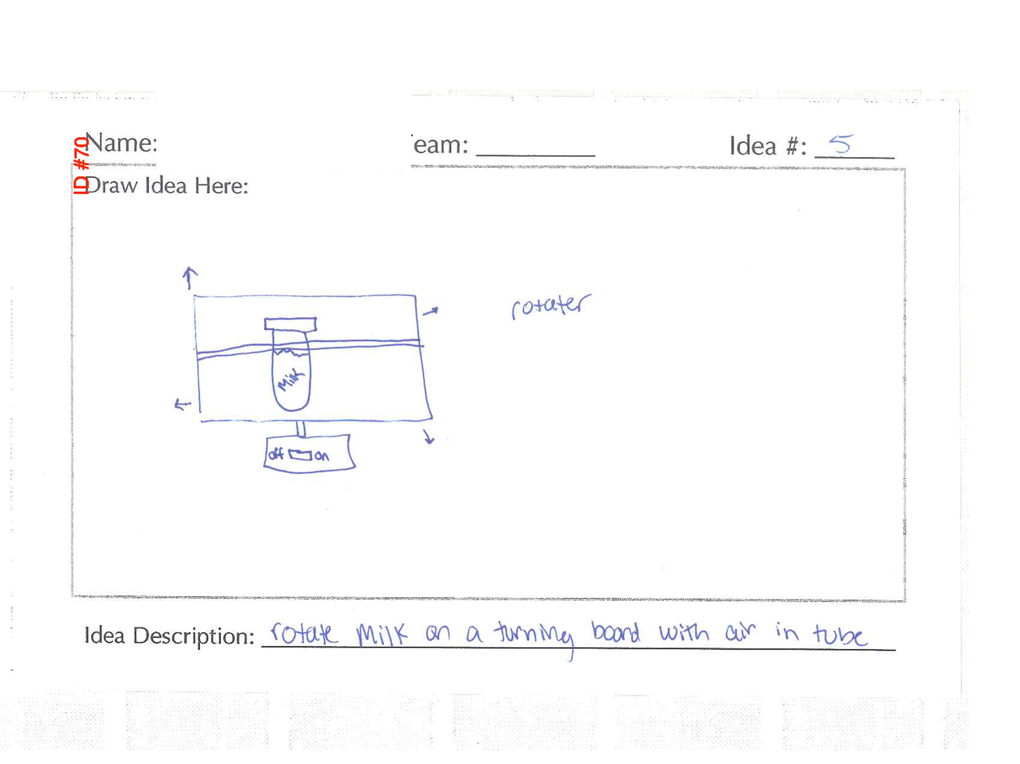 ID #70
Name:
eam:
Idea #: 5
Draw Idea Here:
rotater
Milk
off on
Idea Description: rotate Milk on a turning board with air in tube